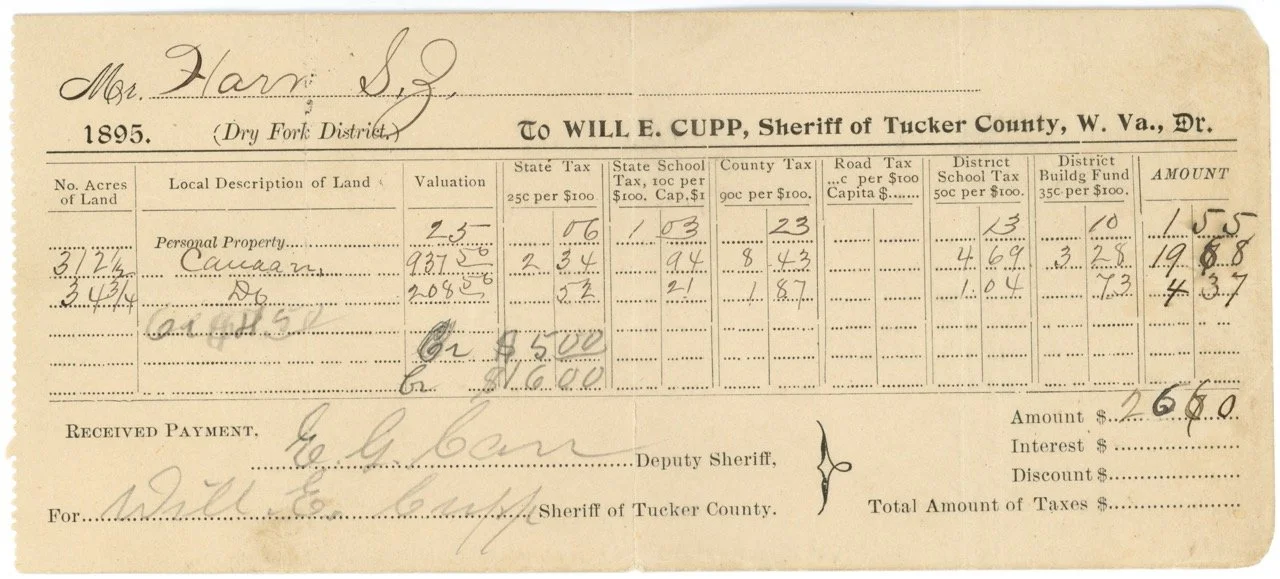 Mr. Harr S. Z.
1895. (Dry Fork District.) To WILL E. CUPP, Sheriff of Tucker County, W. Va., Dr.
No. Acres of Land Local Description of Land Valuation State Tax 25c per $100. State School Tax, 10c per $100. Cap, $1 County Tax 90c per $100. Road Tax ...c per $100 Capita $....... District School Tax 50c per $100. District Buildg Fund 35c per $100. AMOUNT
Personal Property 25 06 1 03 23 13 10 1 55
312½ Canaan, 937 50 2 34 94 8 43 4 69 3 28 19
34¾ Do 208 50 52 21 1 87 1 04 73 4 37
Cr $5 00
Cr $16 00
Amount $ 26
RECEIVED PAYMENT,
Interest $
E. G. Carr Deputy Sheriff,
Discount $
For Will E. Cupp Sheriff of Tucker County.
Total Amount of Taxes $